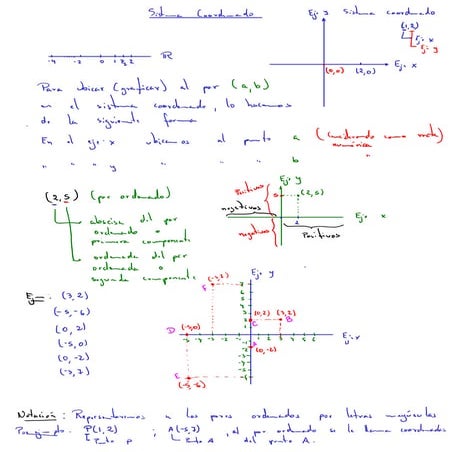 Sistema Coordenado
Eje y Sistema coordenado
(1,2)
Eje x
Eje y
-4 -2 0 1 2 3 ℝ
(0,0) (2,0) Eje x
Para ubicar (graficar) al par (a,b)
en el sistema coordenado, lo hacemos
de la siguiente forma
En el eje x ubicamos al punto a (considerando como recta numérica)
" " " y " " " b "
(2,5) (par ordenado)
abscisa del par
ordenado o
primera componente
ordenada del par
ordenado o
segunda componente
Eje y
Positivos
5 (2,5)
negativos
2 Eje x
negativos
Positivos
Ej: (3,2)
(-5,-6)
(0,2)
(-5,0)
(0,-2)
(-3,7)
Eje y
F
C (0,2) (3,2) B
D (-5,0) Eje x
A
E (-5,-6)
Notación: Representaremos a los pares ordenados por letras mayúsculas
Por ejemplo. P(1,2) ; A(-5,7) , al par ordenado se le llama coordenadas
Punto P Punto A del punto A.